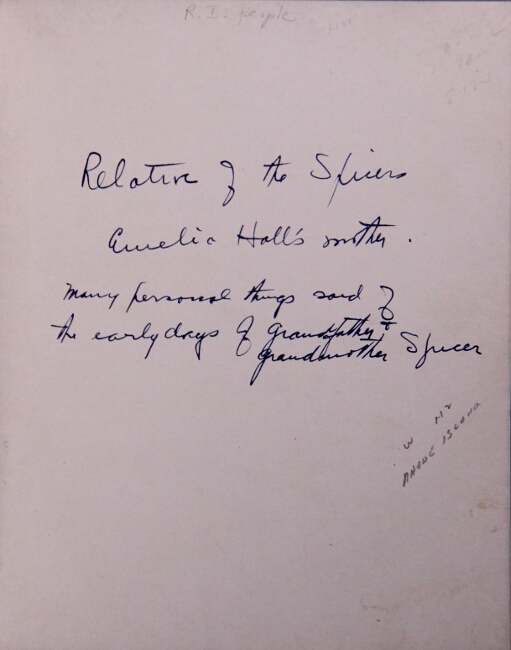 R. I. people
Relative of the Spicers
Amelia Hall's mother.
Many personal things said of
the early days of Grandfather &
Grandmother Spicer
RHODE ISLAND